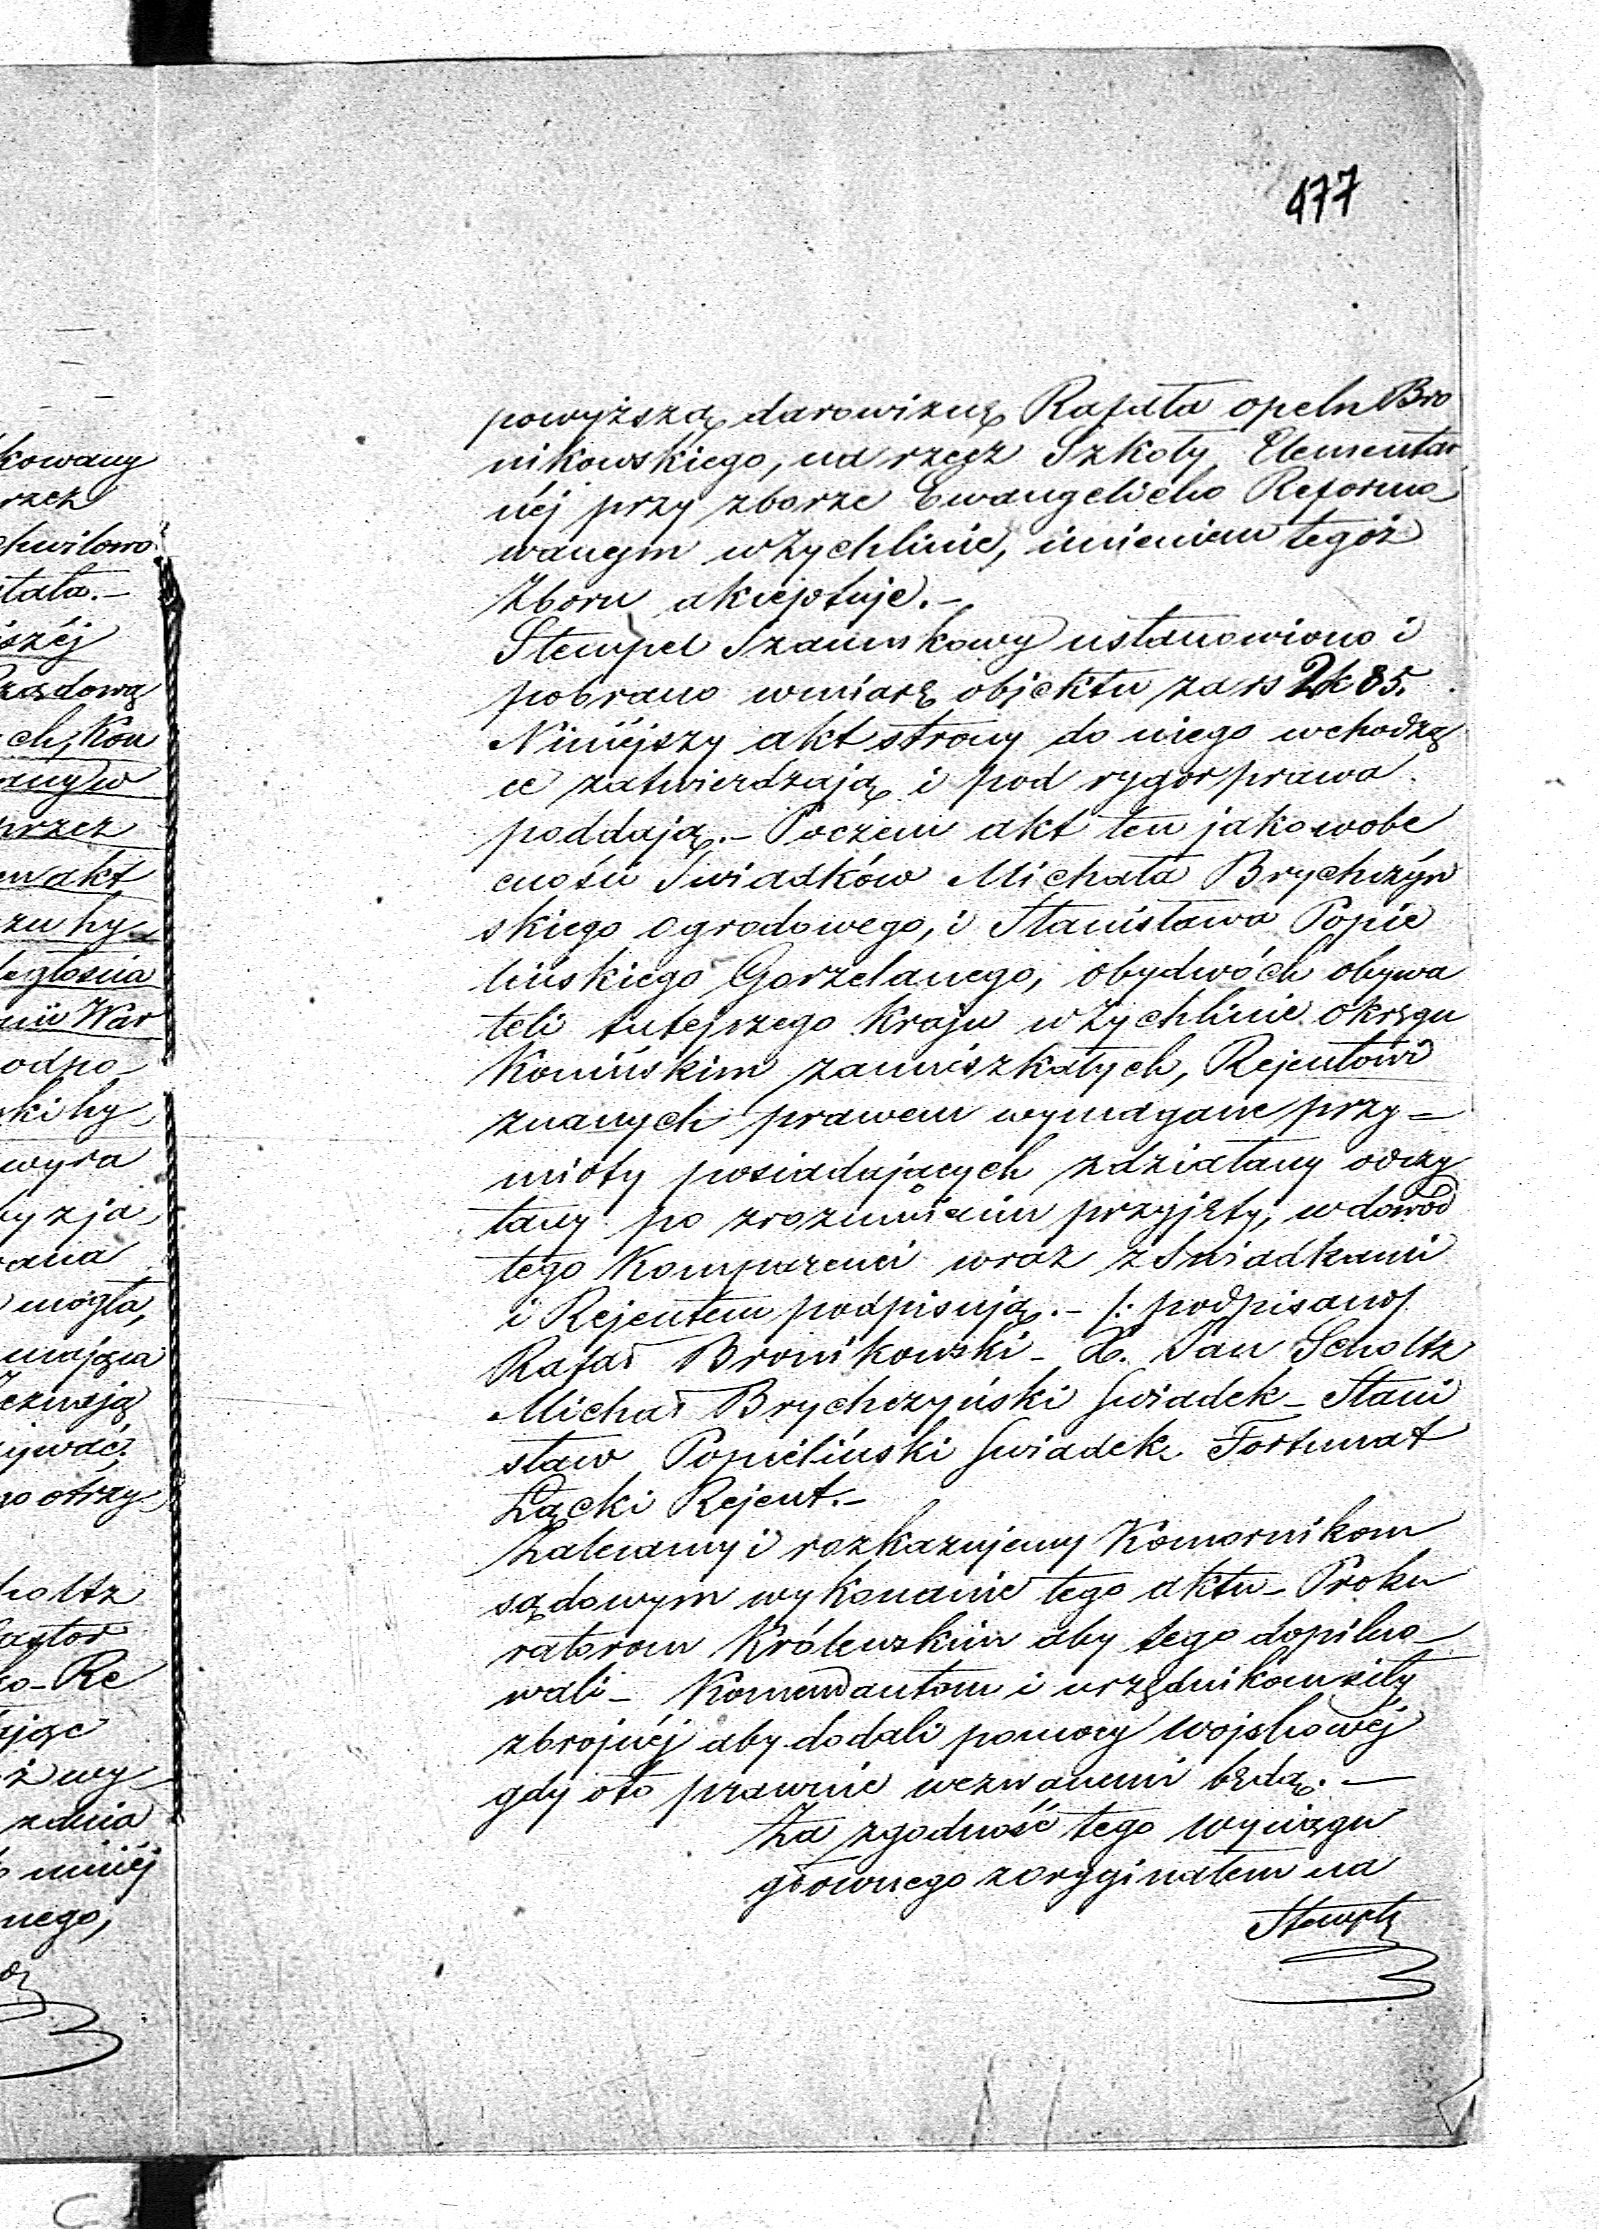 477
powyższą darowiznę Rafała opeln Bro
nikowskiego, na rzecz Szkoły Elementar
néj przy zborze Ewangelicko Reformo
wanym w Żychlinie, imieniem tegoż
Zboru akceptuje.-
Stempel Szacunkowy ustanowiono i
pobrano wmiarę objektu za rs 2 k 85.
Niniéjszy akt strony do niego wchodzą
ce zatwierdzają i pod rygor prawa
poddają.- Poczem akt ten jako wobe
cności Świadków Michała Brychczyń
skiego Ogrodowego, i Stanisława Popie
lińskiego Gorzelanego, obydwóch obywa
teli tutejszego Kraju w Żychlinie Okręgu
Konińskim zamieszkałych, Rejentowi
znanych prawem wymagane przy=
mioty posiadających zdziałany odczy
tany po zrozumieniu przyjęty, w dowód
tego Komparenci wraz z Świadkami
i Rejentem podpisują.- /: podpisano/
Rafał Bronikowski - X. Jan Scholtz
Michał Brychczyński Świadek - Stani
sław Popieliński Świadek Fortunat
Łącki Rejent.-
Zalecamy i rozkazujemy Komornikom
sądowym wykonanie tego aktu - Proku
ratorom Królewskim aby tego dopilno-
wali - Komendantom i urzędnikom siły
zbrojnéj aby dodali pomocy wojskowéj
gdy oto prawnie wezwanemi będą.-
Za zgodność tego wyciągu
głównego z oryginałem na
Stemplu
kowany
rzez
chwilowo
stała.-
jszéj
Rządową
ch, Kon
any w
przez
en akt
zu hy-
Wać
odpo-
ski hy-
wyra
yzja
wana
mogła,
ezwają
ywać
go otrzy-
holtz
Pastor
ko-Re
ając
ż wy-
z dnia
niniéj
nego,